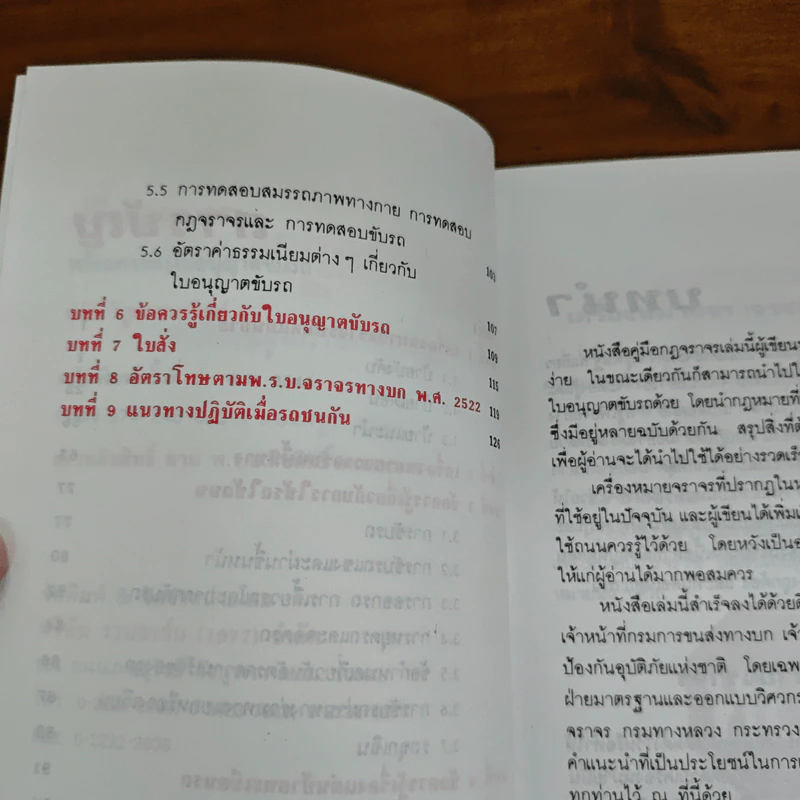 5.5 การทดสอบสมรรถภาพทางกาย การทดสอบ
กฎจราจรและ การทดสอบขับรถ 103
5.6 อัตราค่าธรรมเนียมต่าง ๆ เกี่ยวกับ
ใบอนุญาตขับรถ 107
บทที่ 6 ข้อควรรู้เกี่ยวกับใบอนุญาตขับรถ 109
บทที่ 7 ใบสั่ง 115
บทที่ 8 อัตราโทษตามพ.ร.บ.จราจรทางบก พ.ศ. 2522 119
บทที่ 9 แนวทางปฏิบัติเมื่อรถชนกัน 126
บทนำ
หนังสือคู่มือกฎจราจรเล่มนี้ผู้เขียน
ง่าย ในขณะเดียวกันก็สามารถนำไปใ
ใบอนุญาตขับรถด้วย โดยนำกฎหมายที่
ซึ่งมีอยู่หลายฉบับด้วยกัน สรุปสิ่งที่
เพื่อผู้อ่านจะได้นำไปใช้ได้อย่างรวดเร็
เครื่องหมายจราจรที่ปรากฏใน
ที่ใช้อยู่ในปัจจุบัน และผู้เขียนได้เพิ่ม
ใช้ถนนควรรู้ไว้ด้วย โดยหวังเป็น
ให้แก่ผู้อ่านได้มากพอสมควร
หนังสือเล่มนี้สำเร็จลงได้ด้วย
เจ้าหน้าที่กรมการขนส่งทางบก
ป้องกันอุบัติภัยแห่งชาติ โดยเฉพ
ฝ่ายมาตรฐานและออกแบบวิศวก
จราจร กรมทางหลวง กระทรวง
คำแนะนำที่เป็นประโยชน์ในการ
ทุกท่านไว้ ณ ที่นี้ด้วย